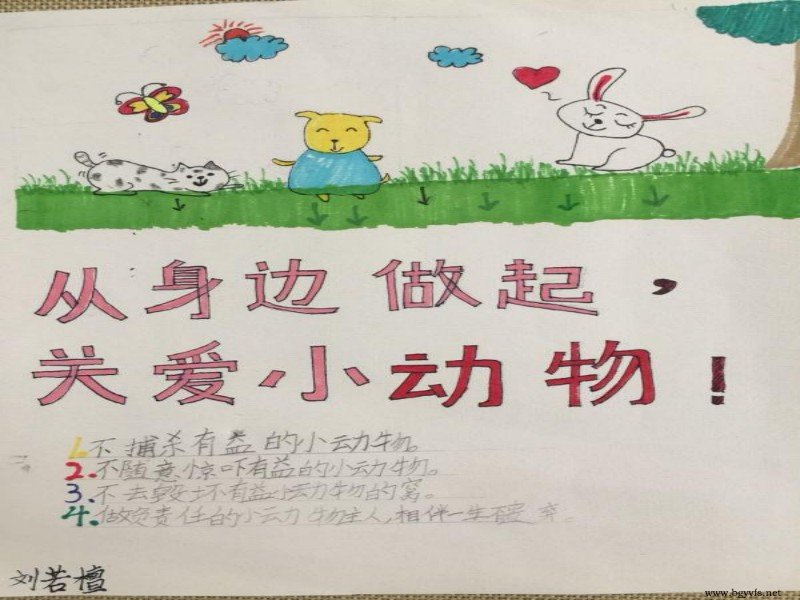 从身边做起，
关爱小动物！
1.不捕杀有益的小动物。
2.不随意惊吓有益的小动物。
3.不去毁坏有益小动物的窝。
4.做负责任的小动物主人,相伴一生不弃。
刘若檀
www.bgyyfs.net